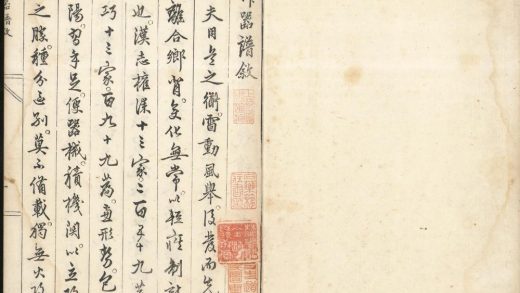 器譜敘
夫兵之雷動風舉後發而先
離合鄉背變化無常以輕疾制敵
也漢志權謀十三家二百五十九
巧十三家百九十九篇兼形勢包
陽習手足便器械積機關以立攻
之勝種分區別莫不備載獨無火攻
器譜敘